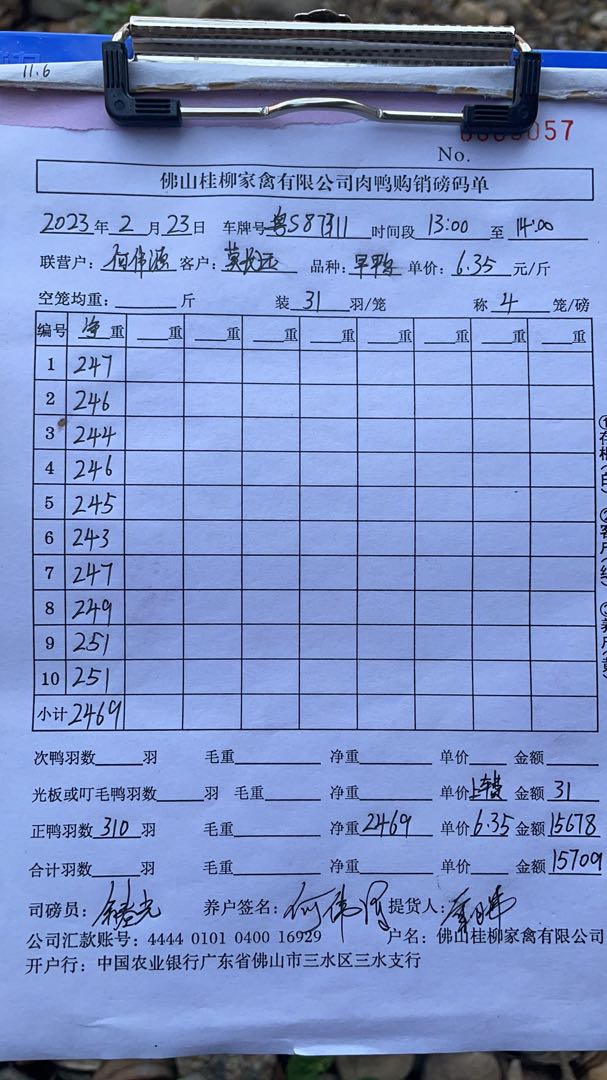 11.6
057
No.
佛山桂柳家禽有限公司肉鸭购销磅码单
2023年 2 月 23日 车牌号粤S87311 时间段 13:00 至 14:00
联营户：何伟源 客户：莫 品种： 单价：6.35 元/斤
空笼均重： 斤 装 31 羽/笼 称 4 笼/磅
编号 净重 重 重 重 重 重 重 重 重
1 247
2 246
3 244
4 246
5 245
6 243
7 247
8 249
9 251
10 251
小计 2469
次鸭羽数 羽 毛重 净重 单价 金额
光板或叮毛鸭羽数 羽 毛重 净重 单价上车费 金额 31
正鸭羽数 310 羽 毛重 净重2469 单价6.35 金额15678
合计羽数 羽 毛重 净重 单价 金额15709
司磅员： 养户签名：何伟源 提货人：
公司汇款账号：4444 0101 0400 16929 户名：佛山桂柳家禽有限公司
开户行：中国农业银行广东省佛山市三水区三水支行
①存根(白) ②客户(红) ③养户(黄)